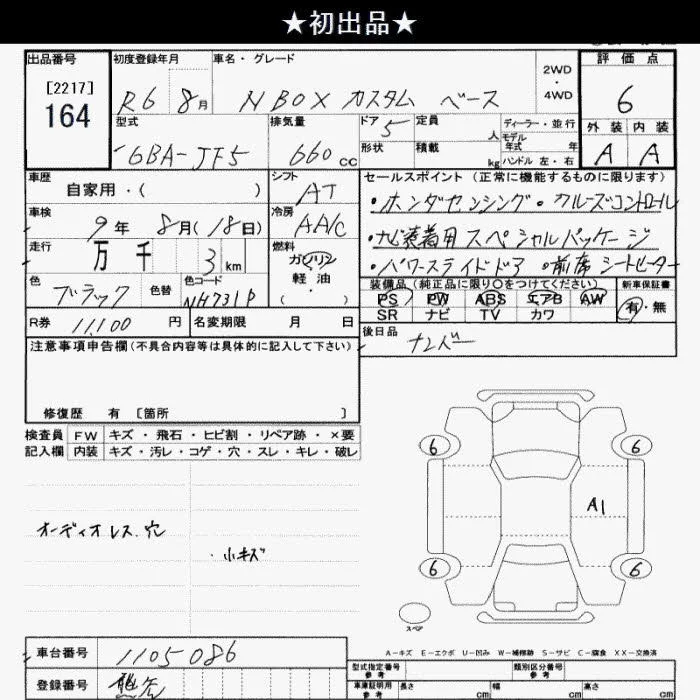 ★初出品★
出品番号
[2217]
164
初度登録年月
R6 8月
車名・グレード
N BOX カスタム ベース
2WD
・
4WD
評価点
6
型式
6BA-JF5
排気量
660 CC
ドア 5
形状
定員 人
積載 kg
ディーラー・並行
モデル年式 年
ハンドル 左・右
外装 内装
A A
車歴
自家用・( )
シフト
AT
車検
9年 8月(18日)
冷房
AA/C
走行
万 千 3 km
燃料
ガソリン
軽油
( )
色
ブラック
色替
色コード
NH731P
R券 11,100 円
名変期限 月 日
セールスポイント(正常に機能するものに限ります)
・ホンダセンシング・クルーズコントロール
・ナビ装着用スペシャルパッケージ
・パワースライドドア ・前席シートヒーター
装備品(純正品に限り○をつけてください)
新車保証書
PS PW ABS エアB AW
SR ナビ TV カワ
有・無
後日品
ナンバー
注意事項申告欄(不具合内容等は具体的に記入して下さい)
修復歴 有 [箇所 ]
検査員記入欄
FW キズ・飛石・ヒビ割・リペア跡・×要
内装 キズ・汚レ・コゲ・穴・スレ・キレ・破レ
オーディオレス穴
・小キズ
6 6
A1
6 6
スペア
A-キズ E-エクボ U-凹み W-補修跡 S-サビ C-腐食 XX-交換済
車台番号 1105086
登録番号
型式指定番号
参考
類別区分番号
参考
車庫証明用
参考
長さ cm 幅 cm 高さ cm